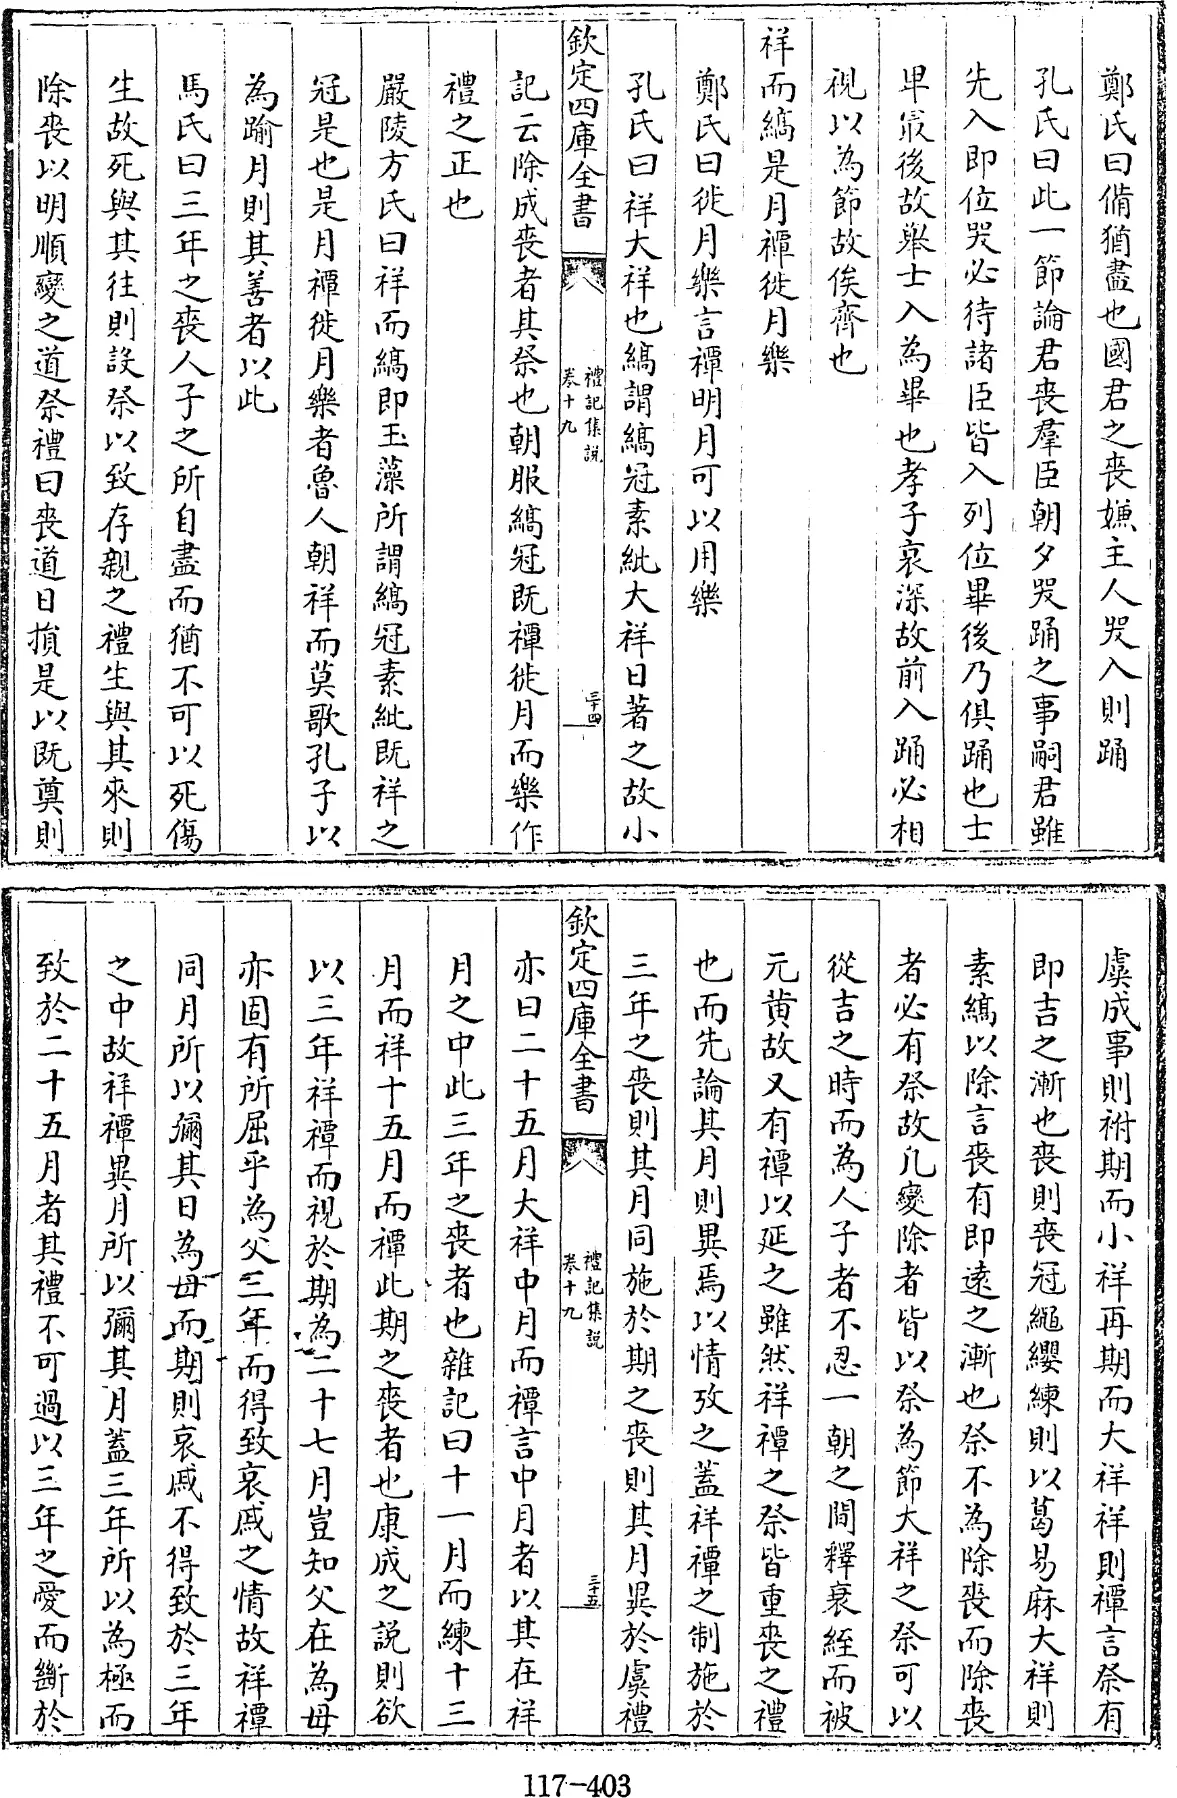 鄭氏曰備猶盡也國君之喪嫌主人哭入則踊
孔氏曰此一節論君喪羣臣朝夕哭踊之事嗣君雖
先入即位哭必待諸臣皆入列位畢後乃俱踊也士
卑最後故舉士入為畢也孝子哀深故前入踊必相
視以為節故俟齊也
祥而縞是月禫徙月樂
鄭氏曰徙月樂言禫明月可以用樂
孔氏曰祥大祥也縞謂縞冠素紕大祥日著之故小
欽定四庫全書
禮記集說
卷十九
三十四
記云除成喪者其祭也朝服縞冠既禫徙月而樂作
禮之正也
嚴陵方氏曰祥而縞即玉藻所謂縞冠素紕既祥之
冠是也是月禫徙月樂者魯人朝祥而莫歌孔子以
為踰月則其善者以此
馬氏曰三年之喪人子之所自盡而猶不可以死傷
生故死與其往則設祭以致存親之禮生與其來則
除喪以明順變之道祭禮曰喪道日損是以既奠則
虞成事則祔期而小祥再期而大祥祥則禫言祭有
即吉之漸也喪則喪冠繩纓練則以葛易麻大祥則
素縞以除言喪有即遠之漸也祭不為除喪而除喪
者必有祭故凡變除者皆以祭為節大祥之祭可以
從吉之時而為人子者不忍一朝之間釋衰絰而被
元黄故又有禫以延之雖然祥禫之祭皆重喪之禮
也而先論其月則異焉以情攷之蓋祥禫之制施於
三年之喪則其月同施於期之喪則其月異於虞禮
欽定四庫全書
禮記集說
卷十九
三十五
亦曰二十五月大祥中月而禫言中月者以其在祥
月之中此三年之喪者也雜記曰十一月而練十三
月而祥十五月而禫此期之喪者也康成之說則欲
以三年祥禫而視於期為二十七月豈知父在為母
亦固有所屈乎為父三年而得致哀戚之情故祥禫
同月所以彌其日為母而期則哀戚不得致於三年
之中故祥禫異月所以彌其月蓋三年所以為極而
致於二十五月者其禮不可過以三年之愛而斷於
117-403